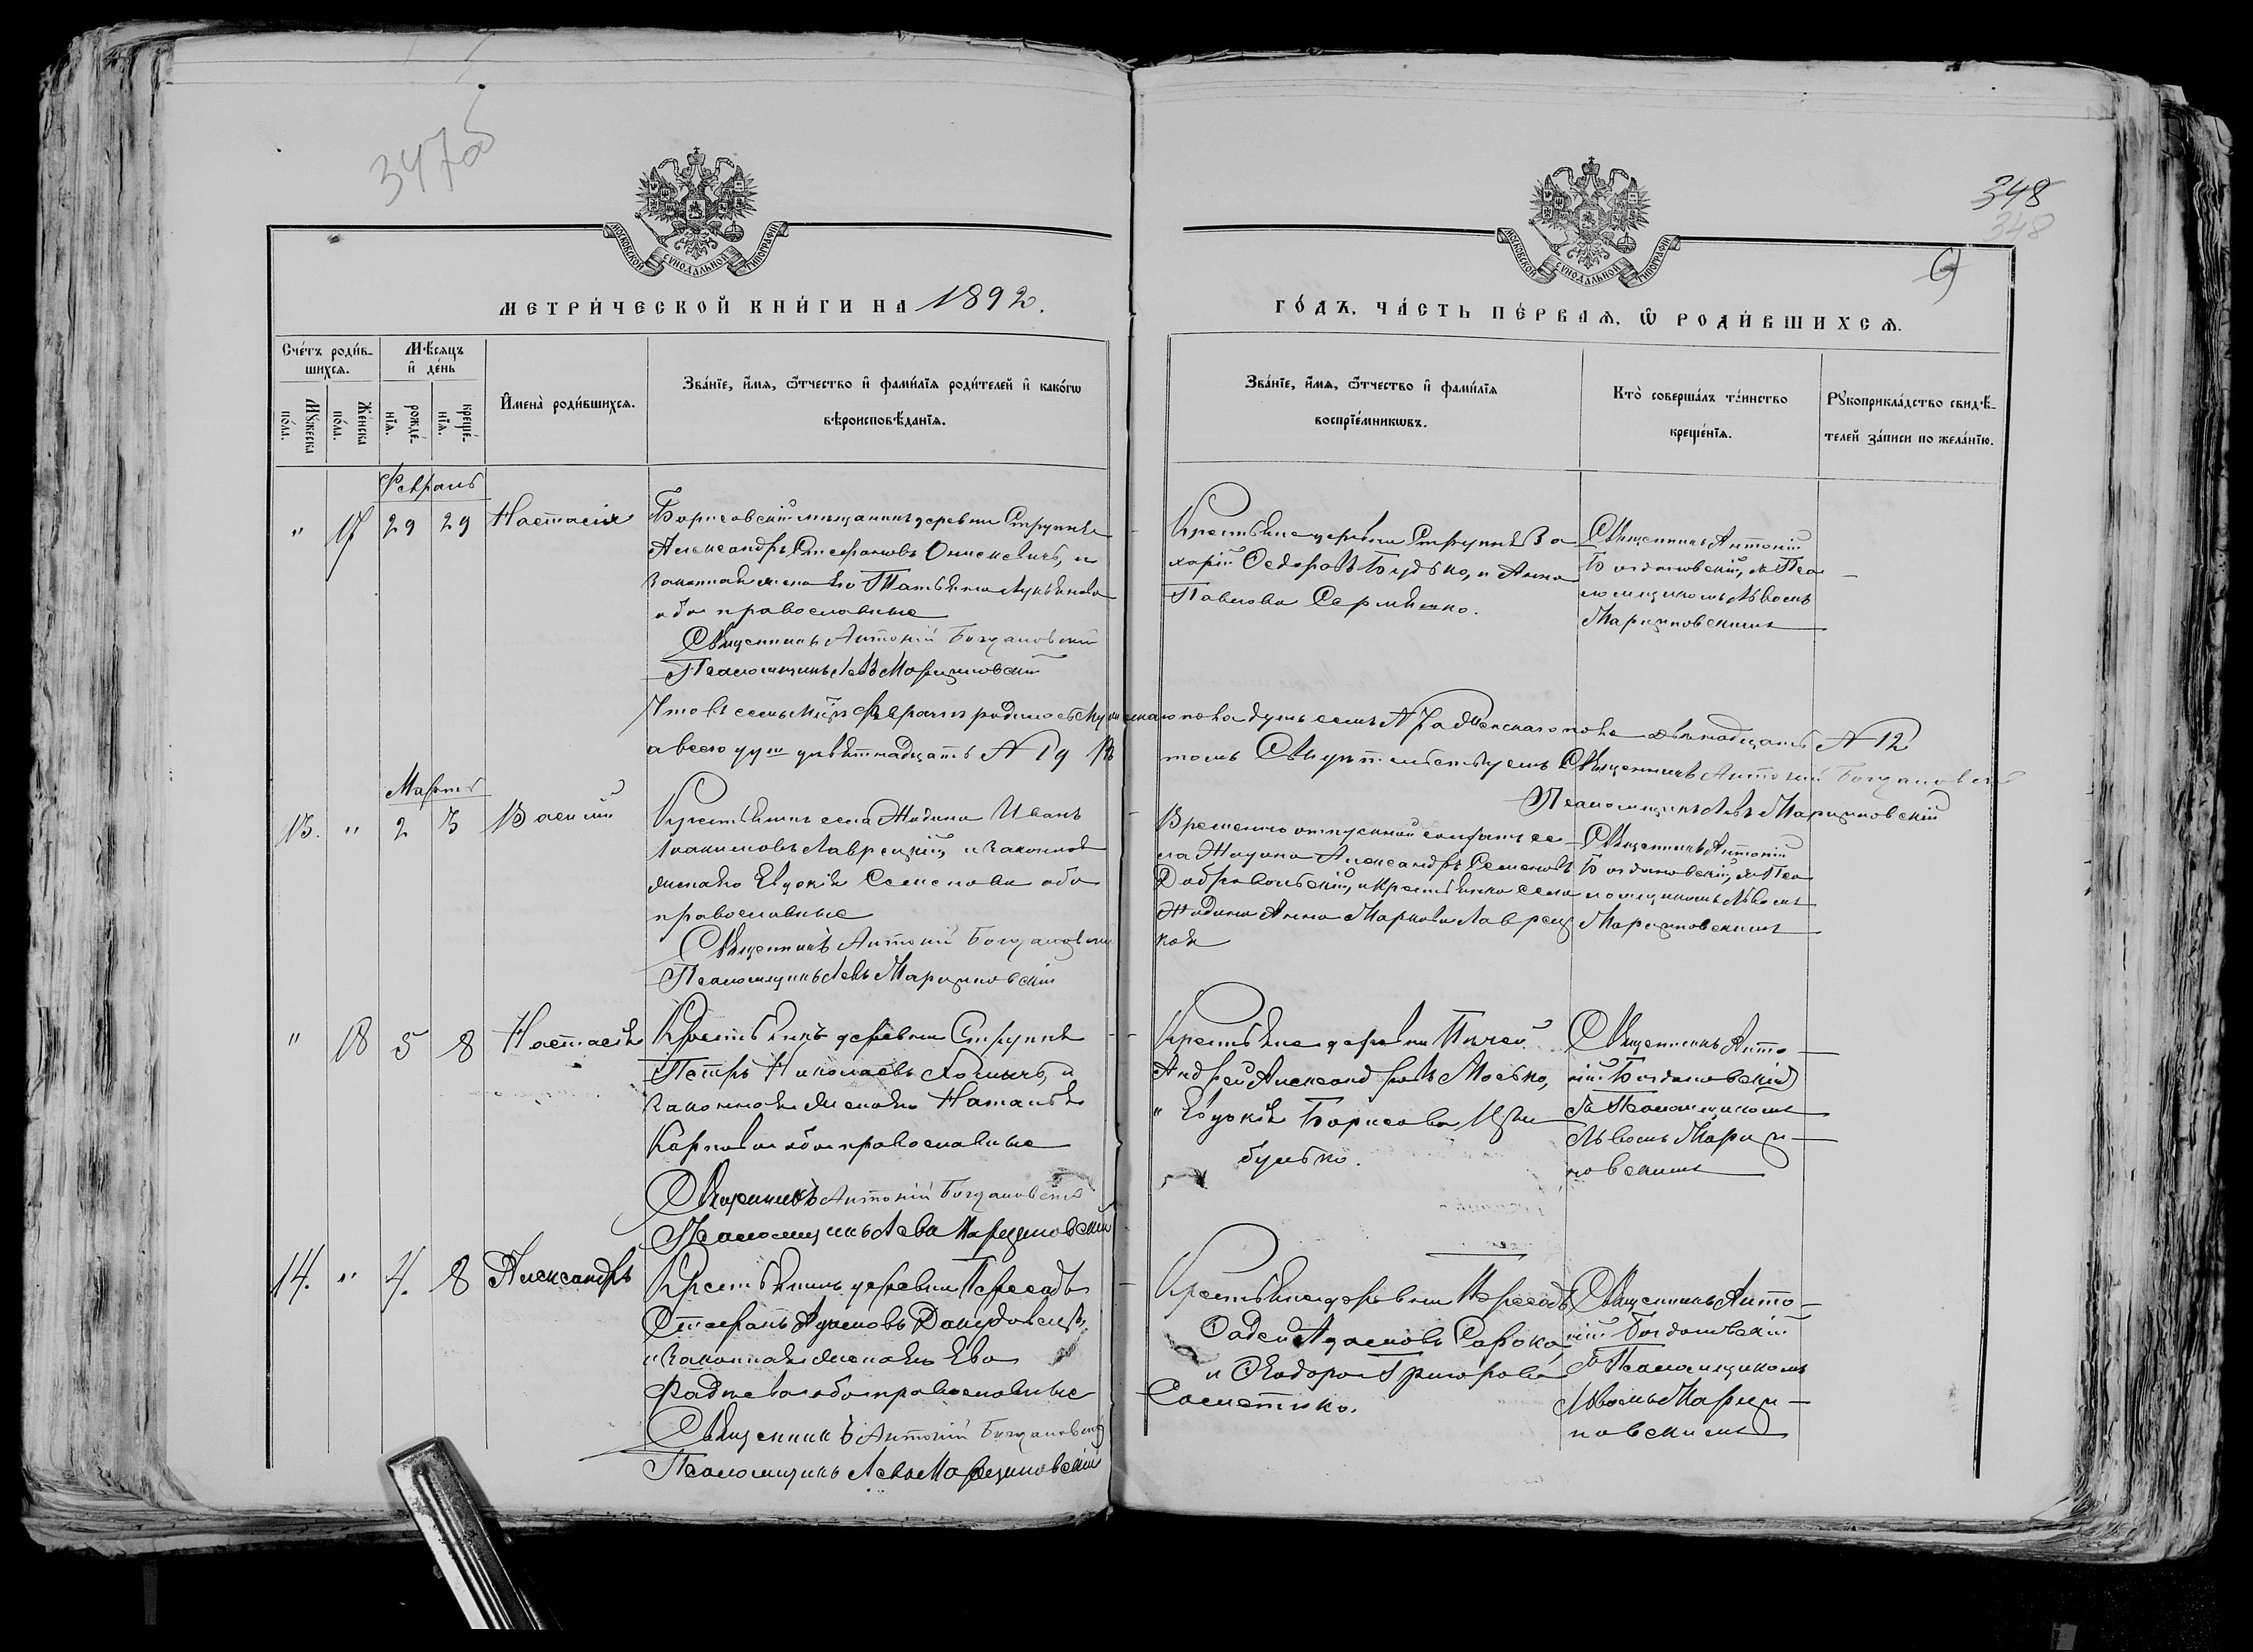 347об
348
348
9
МОСКОВСКОЙ СУНОДАЛЬНОЙ ТИПОГРАФІИ
МОСКОВСКОЙ СУНОДАЛЬНОЙ ТИПОГРАФІИ
МЕТРИ́ЧЕСКОЙ КНИ́ГИ НА 1892.
ГО́ДЪ, ЧА́СТЬ ПЕ́РВАѦ, Ѡ РОДИ́ВШИХСѦ.
Сче́тъ роди́в-
шихсѧ.
Мꙋ́жеска по́ла.
Же́нска по́ла.
Мѣ́сѧцъ
и҆ де́нь
рожде́-
нїѧ.
креще́-
нїѧ.
И҆мена̀ роди́вшихсѧ.
Зва́нїе, и҆́мѧ, ѻ҆́тчество и҆ фами́лїѧ роди́телей и҆ како́гѡ
вѣроисповѣ́данїѧ.
Зва́нїе, и҆́мѧ, ѻ҆́тчество и҆ фами́лїѧ
воспрїе́мникѡвъ.
Кто̀ соверша́лъ та́инство
креще́нїѧ.
Рꙋкоприкла́дство свидѣ́-
телей за́писи по жела́нїю.
Февраль
" 17 29 29 Настасія
Борисовскій мѣщанинъ деревни Струпня
Александръ Стефановъ Онискевичъ, и
законная жена его Татьяна Лукьянова
оба православные
Священникъ Антоній Богдановскій
Псаломщикъ Левъ Марциновскій
Крестьяне деревни Струпня За
харій Ѳедоровъ Будько, и Анна
Павлова Сермяжко.
Священникъ Антоній
Богдановскій, съ Пса
ломщикомъ Львомъ
Марциновскимъ
Что въ семъ мѣсяцѣ Февралѣ родилось мужескаго пола душъ семь № 7 а женскаго пола двѣнадцать № 12
а всего душъ девятнадцать № 19 Въ томъ Свидѣтельствуемъ Священникъ Антоній Богдановскій
Псаломщикъ Левъ Марциновскій
Мартъ
13. " 2 3 Василій
Крестьянинъ села Жодина Иванъ
Іоакимовъ Лаврецкій, и законная
жена его Евдокія Семенова оба
православные
Священникъ Антоній Богдановскій
Псаломщикъ Левъ Марциновскій
Временно отпускной солдатъ се
ла Жодина Александръ Семеновъ
Добровольскій, и крестьянка села
Жодина Анна Маркова Лаврец
кая
Священникъ Антоній
Богдановскій, съ Пса
ломщикомъ Львомъ
Марциновскимъ
" 18 5 8 Настасія
Крестьянинъ деревни Струпня
Петръ Николаевъ, и
законная жена его Наталія
Карпова оба православные
Священникъ Антоній Богдановскій
Псаломщикъ Левъ Марциновскій
Крестьяне деревни
Андрей Александровъ Мосько,
и Евдокія Борисова Цы
булько.
Священникъ Анто
ній Богдановскій
съ Псаломщикомъ
Львомъ Марци
новскимъ
14. " 4. 8 Александръ
Крестьянинъ деревни Пересадъ
Стефанъ Адамовъ
и законная жена его Ева
Фадѣева оба православные
Священникъ Антоній Богдановскій
Псаломщикъ Левъ Марциновскій
Крестьяне деревни Пересадъ
Фадей Адамовъ Сорока,
и Ѳеодора Григорова
Священникъ Анто
ній Богдановскій
съ Псаломщикомъ
Львомъ Марци
новскимъ